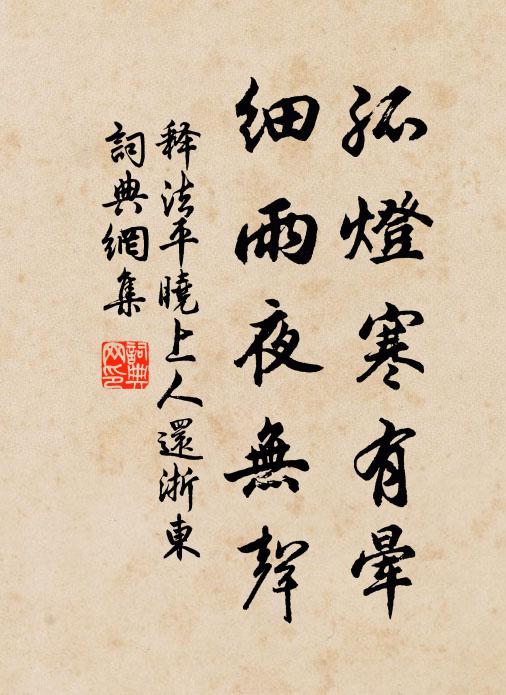 孤燈寒有暈
細雨夜無聲
释法平曉上人還浙東
詞典網集
詞典网印